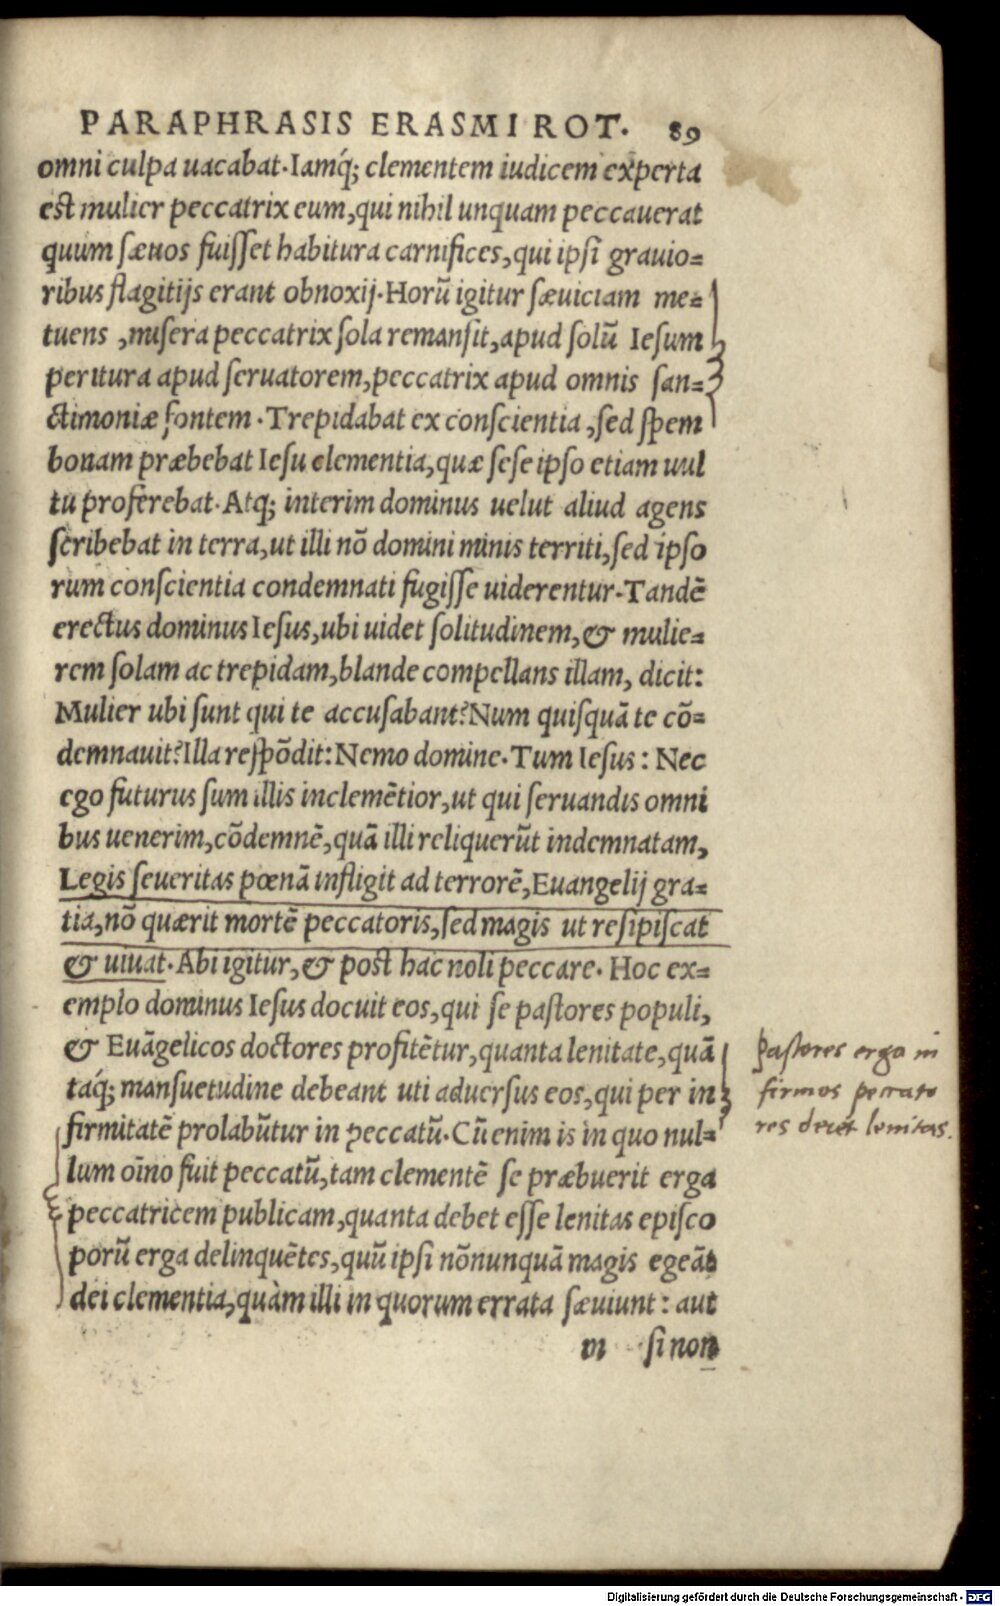 PARAPHRASIS ERASMI ROT. 89
omni culpa uacabat. Iamq́; clementem iudicem experta
est mulier peccatrix eum, qui nihil unquam peccauerat
quum sæuos fuisset habitura carnifices, qui ipsi grauio=
ribus flagitijs erant obnoxij. Horū igitur sæuiciam me=
tuens, misera peccatrix sola remansit, apud solū Iesum
peritura apud seruatorem, peccatrix apud omnis san=
ctimoniæ fontem. Trepidabat ex conscientia, sed spem
bonam præbebat Iesu clementia, quæ sese ipso etiam uul
tu proferebat. Atq; interim dominus uelut aliud agens
scribebat in terra, ut illi nō domini minis territi, sed ipso
rum conscientia condemnati fugisse uiderentur. Tandē
erectus dominus Iesus, ubi uidet solitudinem, & mulie=
rem solam ac trepidam, blande compellans illam, dicit:
Mulier ubi sunt qui te accusabant? Num quisquā te cō=
demnauit? Illa respōdit: Nemo domine. Tum Iesus: Nec
ego futurus sum illis inclemētior, ut qui seruandis omni
bus uenerim, cōdemnē, quā illi reliquerūt indemnatam,
Legis seueritas pœnā infligit ad terrorē, Euangelij gra=
tia, nō quærit mortē peccatoris, sed magis ut resipiscat
& uiuat. Abi igitur, & post hac noli peccare. Hoc ex=
emplo dominus Iesus docuit eos, qui se pastores populi,
& Euāgelicos doctores profitētur, quanta lenitate, quā
taq́; mansuetudine debeant uti aduersus eos, qui per in
firmitatē prolabūtur in peccatū. Cū enim is in quo nul=
lum oīno fuit peccatū, tam clementē se præbuerit erga
peccatricem publicam, quanta debet esse lenitas episco
porū erga delinquētes, quū ipsi nōnunquā magis egeāt
dei clementia, quàm illi in quorum errata sæuiunt: aut
m si non
pastores erga in
firmos peccato
res decet lenitas.
Digitalisierung gefördert durch die Deutsche Forschungsgemeinschaft - DFG